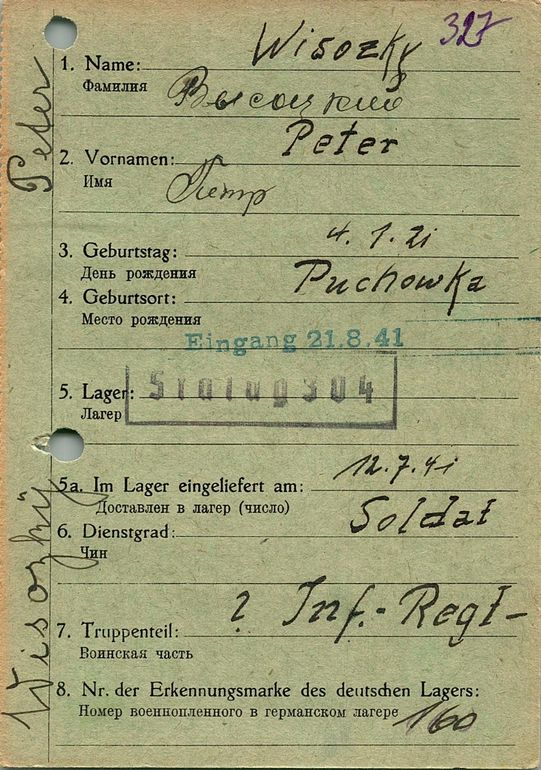 327
1. Name: Wisozky
Фамилия Высоцкий
Peter
2. Vornamen:
Имя Петр
3. Geburtstag: 4. 1. 21
День рождения
4. Geburtsort: Puchowka
Место рождения
Eingang 21.8.41
5. Lager: Stalag 304
Лагер
5a. Im Lager eingeliefert am: 12.7.41
Доставлен в лагер (число)
6. Dienstgrad: Soldat
Чин
7. Truppenteil: ? Inf.-Regt-
Воинская часть
8. Nr. der Erkennungsmarke des deutschen Lagers:
Номер военнопленного в германском лагере 160
Wisozkÿ Peter